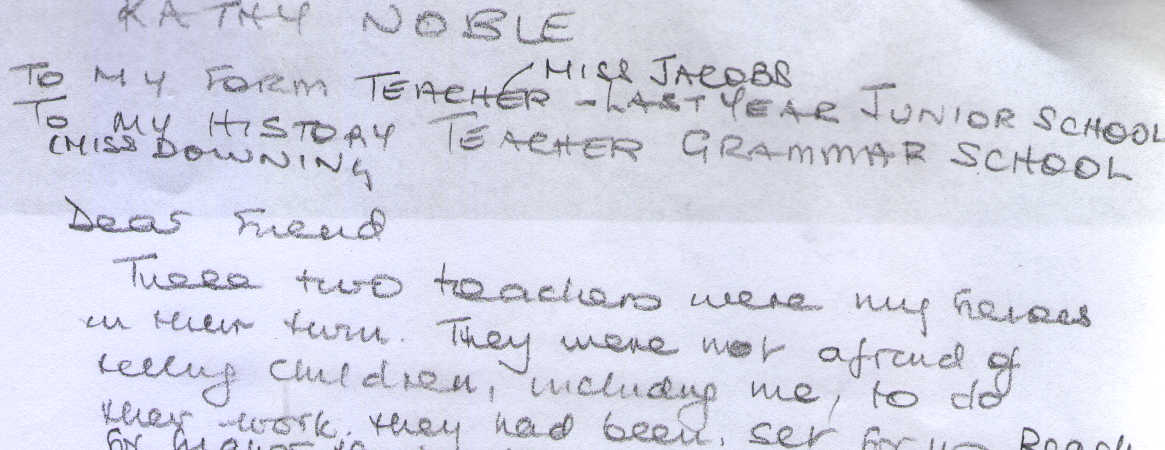 KATHY NOBLE
(MISS JACOBS
TO MY FORM TEACHER - LAST YEAR JUNIOR SCHOOL
TO MY HISTORY TEACHER GRAMMAR SCHOOL
(MISS DOWNING
Dear Friend
These two teachers were my heroes
in their turn. They were not afraid of
telling children, including me, to do
their work. they had been, set for us